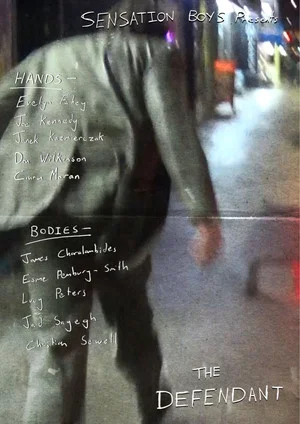 SENSATION BOYS Presents
HANDS —
Evelyn
Joe Kennedy
Jacek Kazmierczak
Dan Wilkinson
Ciara Moran
BODIES —
James Charalambides
Esme Pemburg-Smith
Lucy Peters
Sayegh
Christian Sewell
THE
DEFENDANT